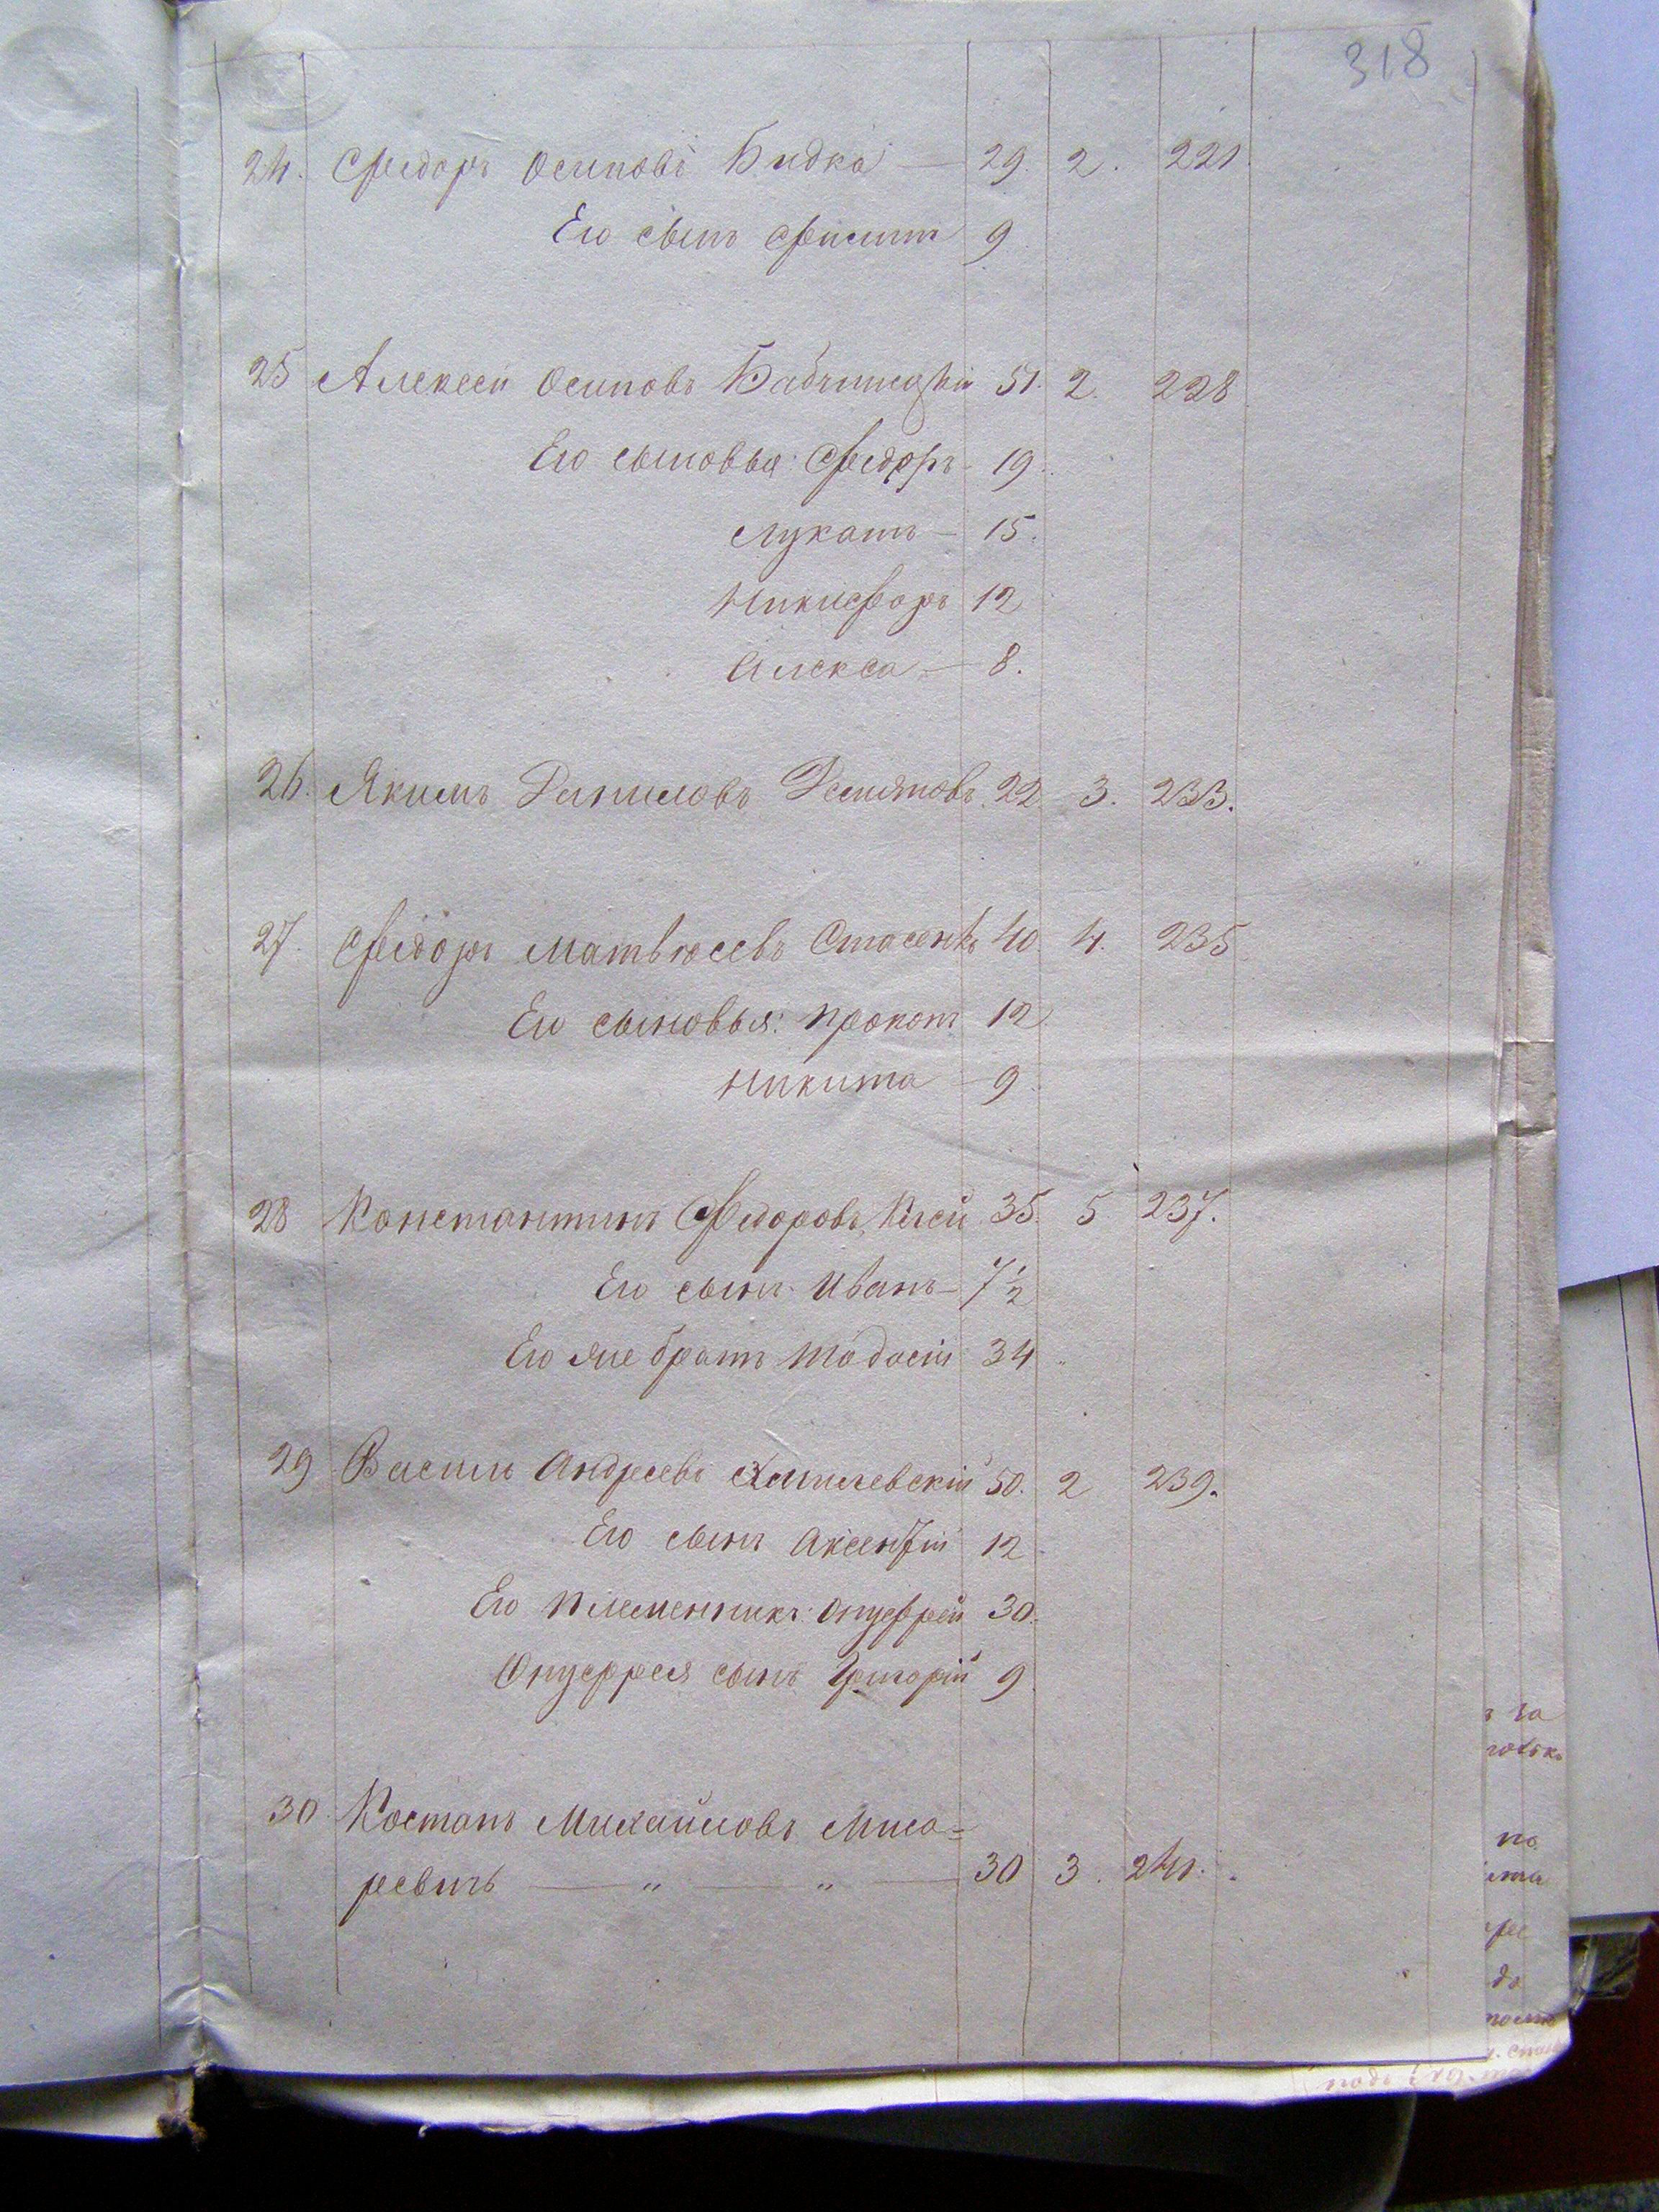 318
24. Федоръ Осиповъ Бидка — 29. 2. 221.
Его сынъ Филипъ 9
25 Алексей Осиповъ Бабчинскій 51. 2. 228
Его сыновья: Федоръ - 19.
Лукашъ — 15.
Никифоръ 12
Алекса — 8.
26. Якимъ Даниловъ 22 3. 233.
27. Федоръ Матвеевъ Стасенко 40. 4. 235.
Его сыновья: Прокопъ 12
Никита — 9.
28 Константинъ Федоровъ 35. 5 237.
Его сынъ Иванъ — 7½
Его же братъ Тодосій 34
29 Василь Андреевъ Хмилевскій 50. 2 239.
Его сынъ Аксентій 12
Его племенникъ: Онуфрей 30.
Онуфрея сынъ Григорій 9
30 Костанъ Михайловъ Миса=
ревичъ — " — " — 30 3. 241.